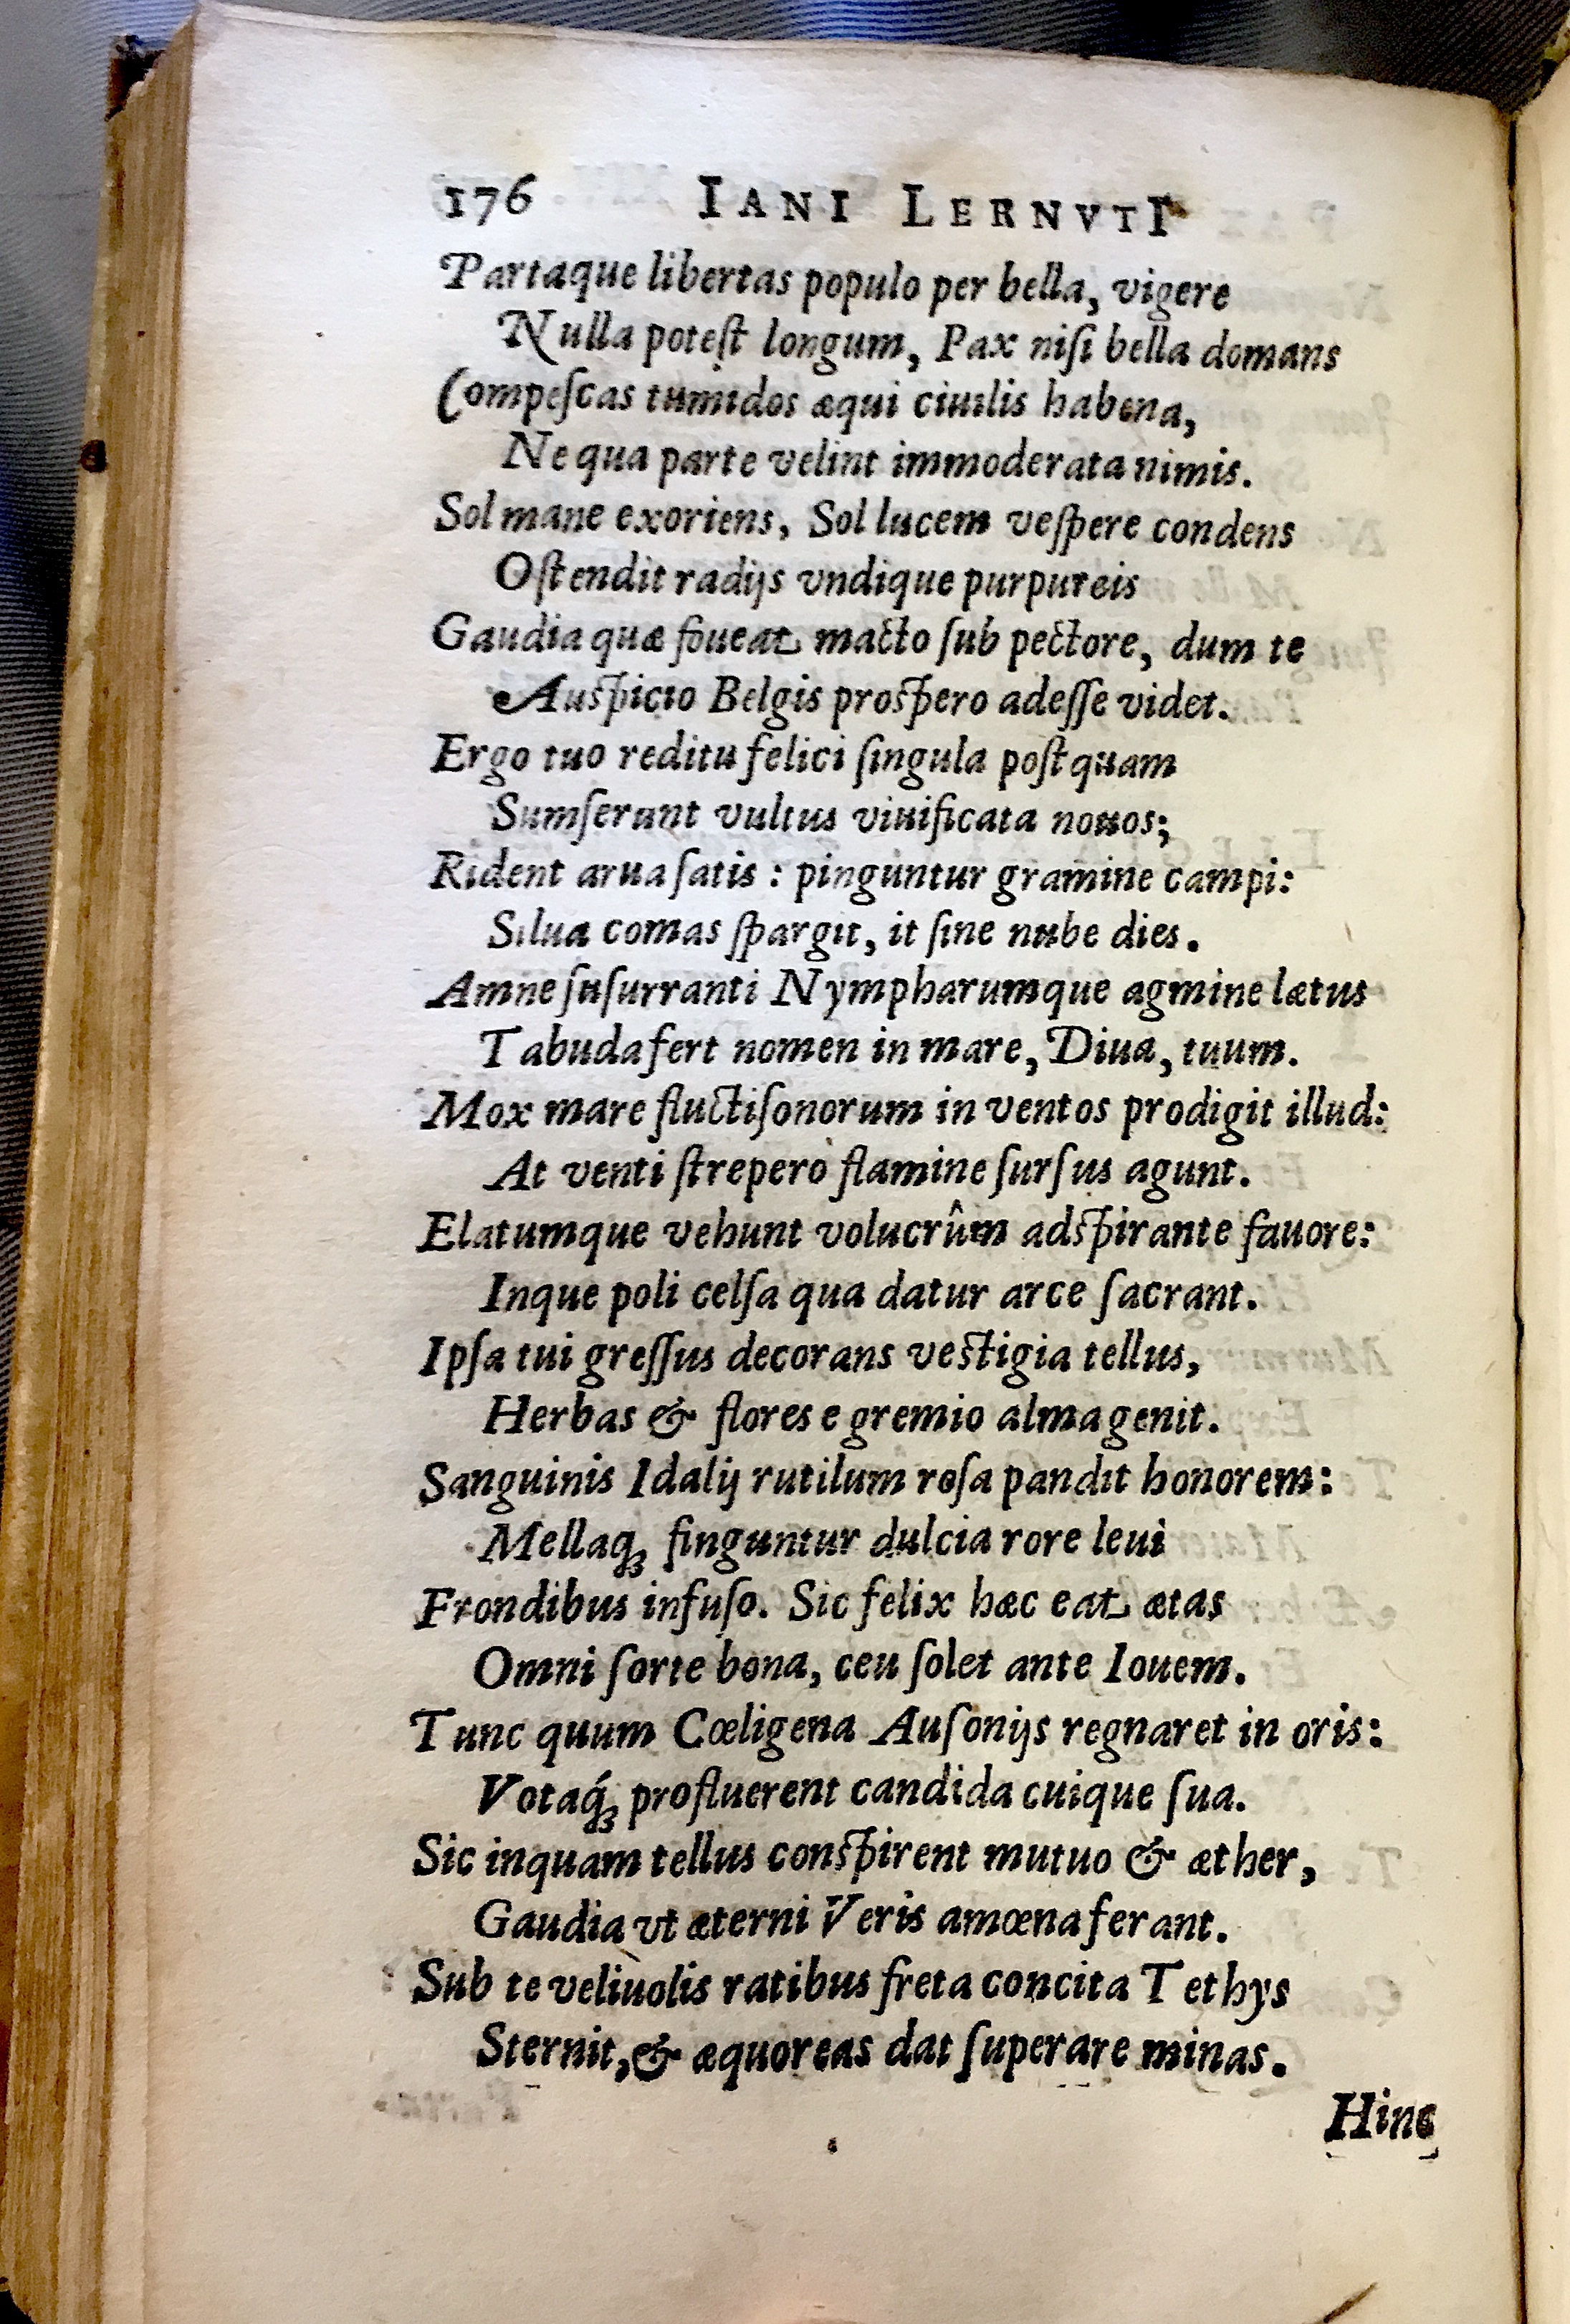 176 IANI LERNVTI
Partaque libertas populo per bella, vigere
Nulla poteſt longum, Pax niſi bella domans
Compeſcas tumidos æqui ciuilis habena,
Ne qua parte velint immoderata nimis.
Sol mane exoriens, Sol lucem veſpere condens
Oſtendit radijs vndique purpureis
Gaudia quæ foueat macto ſub pectore, dum te
Auſpicio Belgis proſpero adeſſe videt.
Ergo tuo reditu felici ſingula poſtquam
Sumſerunt vultus viuificata nouos;
Rident arua ſatis : pinguntur gramine campi:
Silua comas ſpargit, it ſine nube dies.
Amne ſuſurranti Nympharumque agmine lætus
Tabuda fert nomen in mare, Diua, tuum.
Mox mare fluctiſonorum in ventos prodigit illud:
At venti ſtrepero flamine ſurſus agunt.
Elatumque vehunt volucrûm adſpirante fauore:
Inque poli celſa qua datur arce ſacrant.
Ipſa tui greſſus decorans veſtigia tellus,
Herbas & flores e gremio alma genit.
Sanguinis Idalij rutilum roſa pandit honorem:
Mellaq; finguntur dulcia rore leui
Frondibus infuſo. Sic felix hæc eat ætas
Omni ſorte bona, ceu ſolet ante Iouem.
Tunc quum Cœligena Auſonijs regnaret in oris:
Votaq́; profluerent candida cuique ſua.
Sic inquam tellus conſpirent mutuo & æther,
Gaudia vt æterni Veris amœna ferant.
Sub te veliuolis ratibus freta concita Tethys
Sternit, & æquoreas dat ſuperare minas.
Hinc